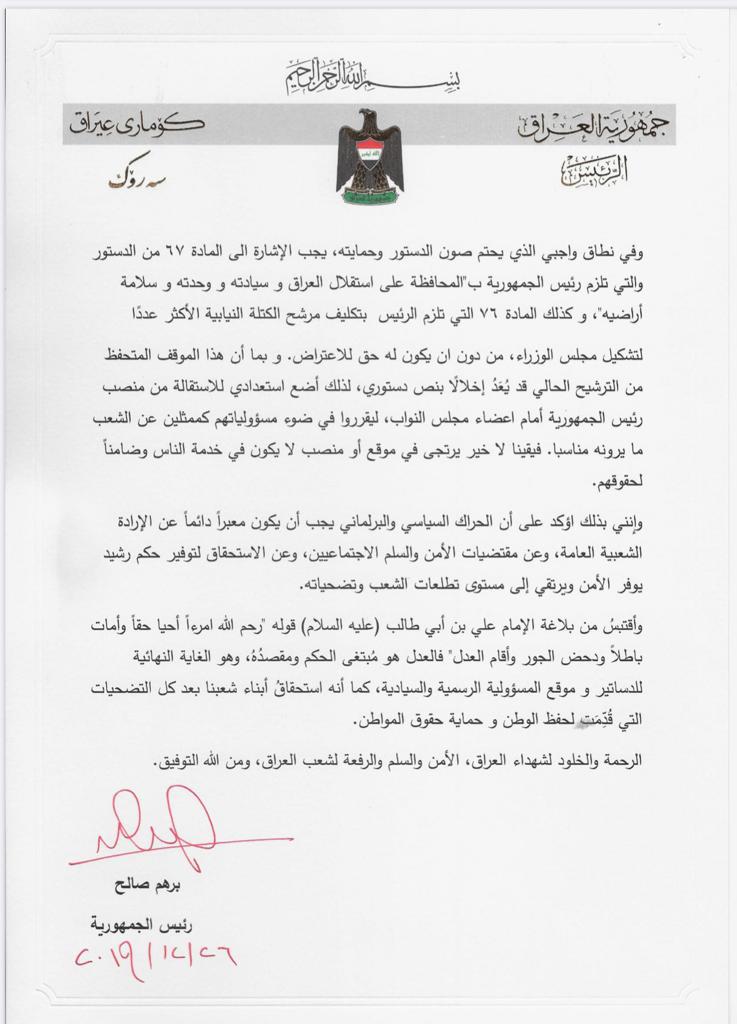 بسم الله الرحمن الرحيم
جمهورية العراق
كۆماری عێراق
الرئيس
سەرۆك
الله أكبر
وفي نطاق واجبي الذي يحتم صون الدستور وحمايته، يجب الإشارة الى المادة ٦٧ من الدستور
والتي تلزم رئيس الجمهورية ب"المحافظة على استقلال العراق و سيادته و وحدته و سلامة
أراضيه"، و كذلك المادة ٧٦ التي تلزم الرئيس بتكليف مرشح الكتلة النيابية الأكثر عددًا
لتشكيل مجلس الوزراء، من دون ان يكون له حق للاعتراض. و بما أن هذا الموقف المتحفظ
من الترشيح الحالي قد يُعَدُ إخلالًا بنص دستوري، لذلك أضع استعدادي للاستقالة من منصب
رئيس الجمهورية أمام اعضاء مجلس النواب، ليقرروا في ضوء مسؤولياتهم كممثلين عن الشعب
ما يرونه مناسبا. فيقينا لا خير يرتجى في موقع أو منصب لا يكون في خدمة الناس وضامناً
لحقوقهم.
وإنني بذلك اؤكد على أن الحراك السياسي والبرلماني يجب أن يكون معبراً دائماً عن الإرادة
الشعبية العامة، وعن مقتضيات الأمن والسلم الاجتماعيين، وعن الاستحقاق لتوفير حكم رشيد
يوفر الأمن ويرتقي إلى مستوى تطلعات الشعب وتضحياته.
وأقتبسُ من بلاغة الإمام علي بن أبي طالب (عليه السلام) قوله "رحم الله امرءاً أحيا حقاً وأمات
باطلاً ودحض الجور وأقام العدل" فالعدل هو مُبتغى الحكم ومقصدُهُ، وهو الغاية النهائية
للدساتير و موقع المسؤولية الرسمية والسيادية، كما أنه استحقاقُ أبناء شعبنا بعد كل التضحيات
التي قُدِّمَت لحفظ الوطن و حماية حقوق المواطن.
الرحمة والخلود لشهداء العراق، الأمن والسلم والرفعة لشعب العراق، ومن الله التوفيق.
برهم صالح
رئيس الجمهورية
٢٠١٩/١٢/٢٦